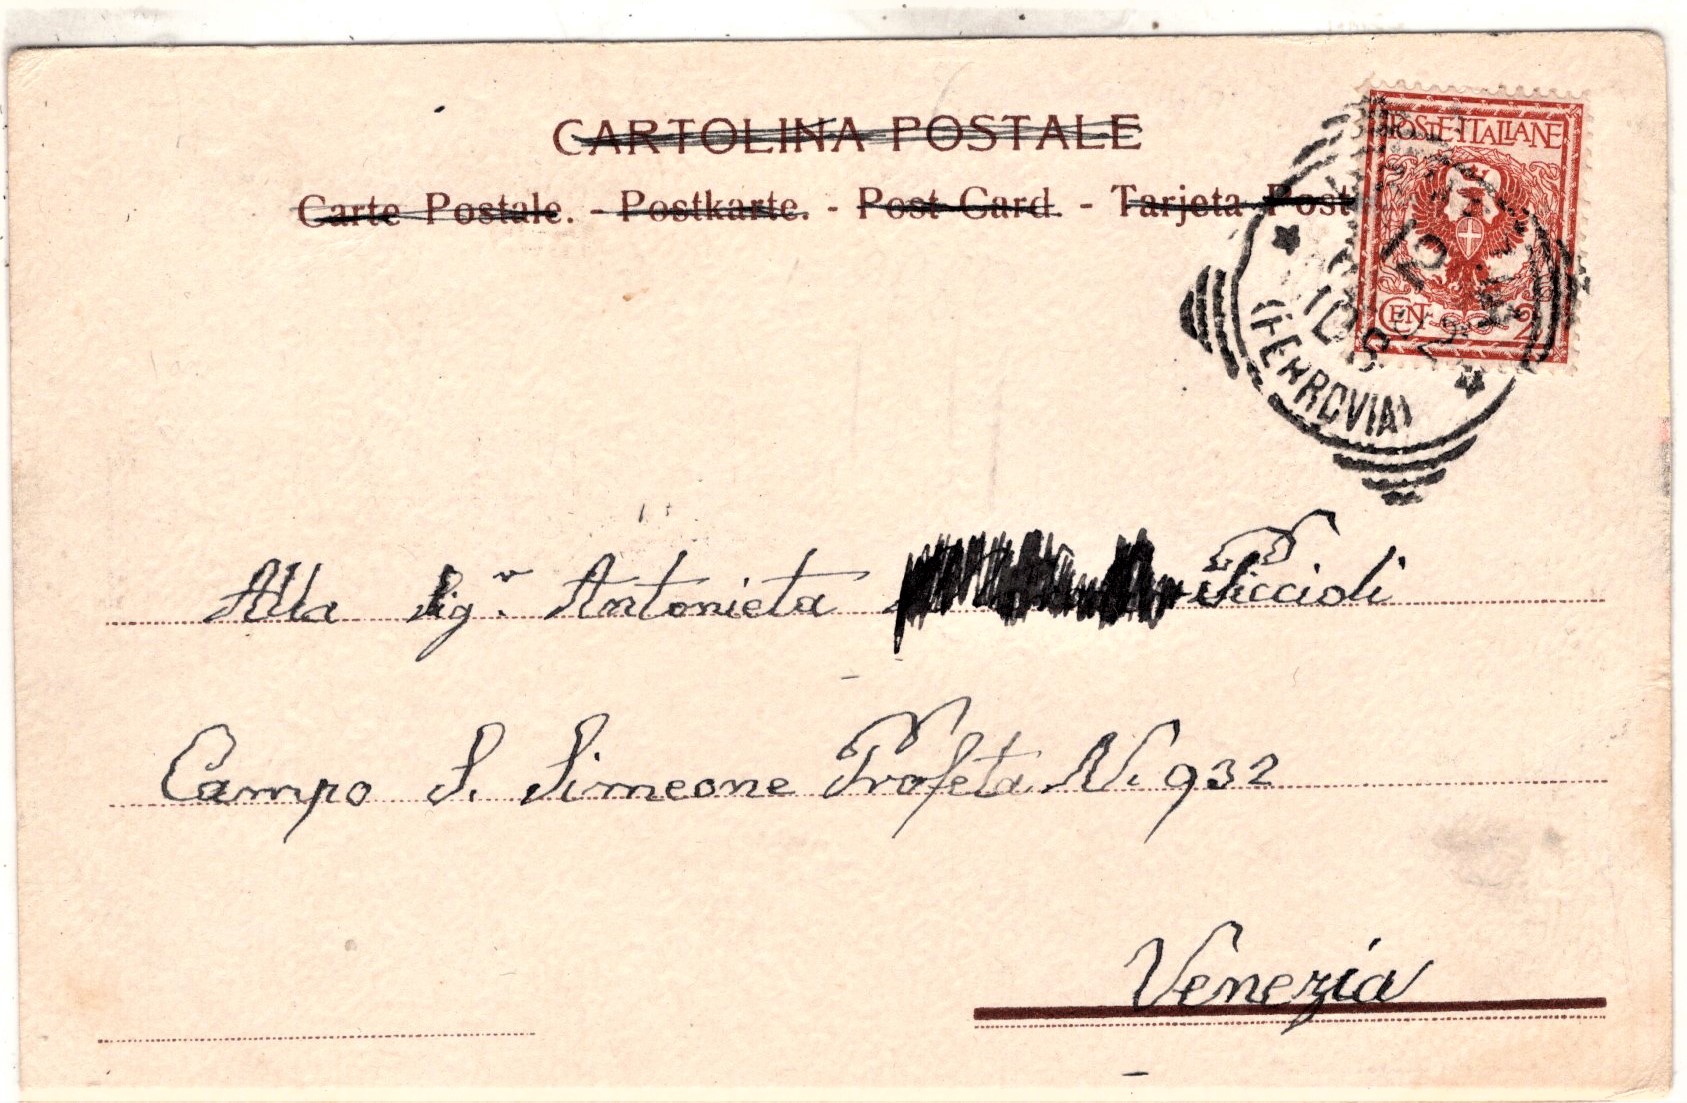 CARTOLINA POSTALE
Carte Postale. - Postkarte. - Post Card. - Tarjeta Post
POSTE ITALIANE
CEN. 2
(FERROVIA)
Alla Sig.ʳ Antonieta Piccioli
Campo S. Simeone Profeta N. 932
Venezia